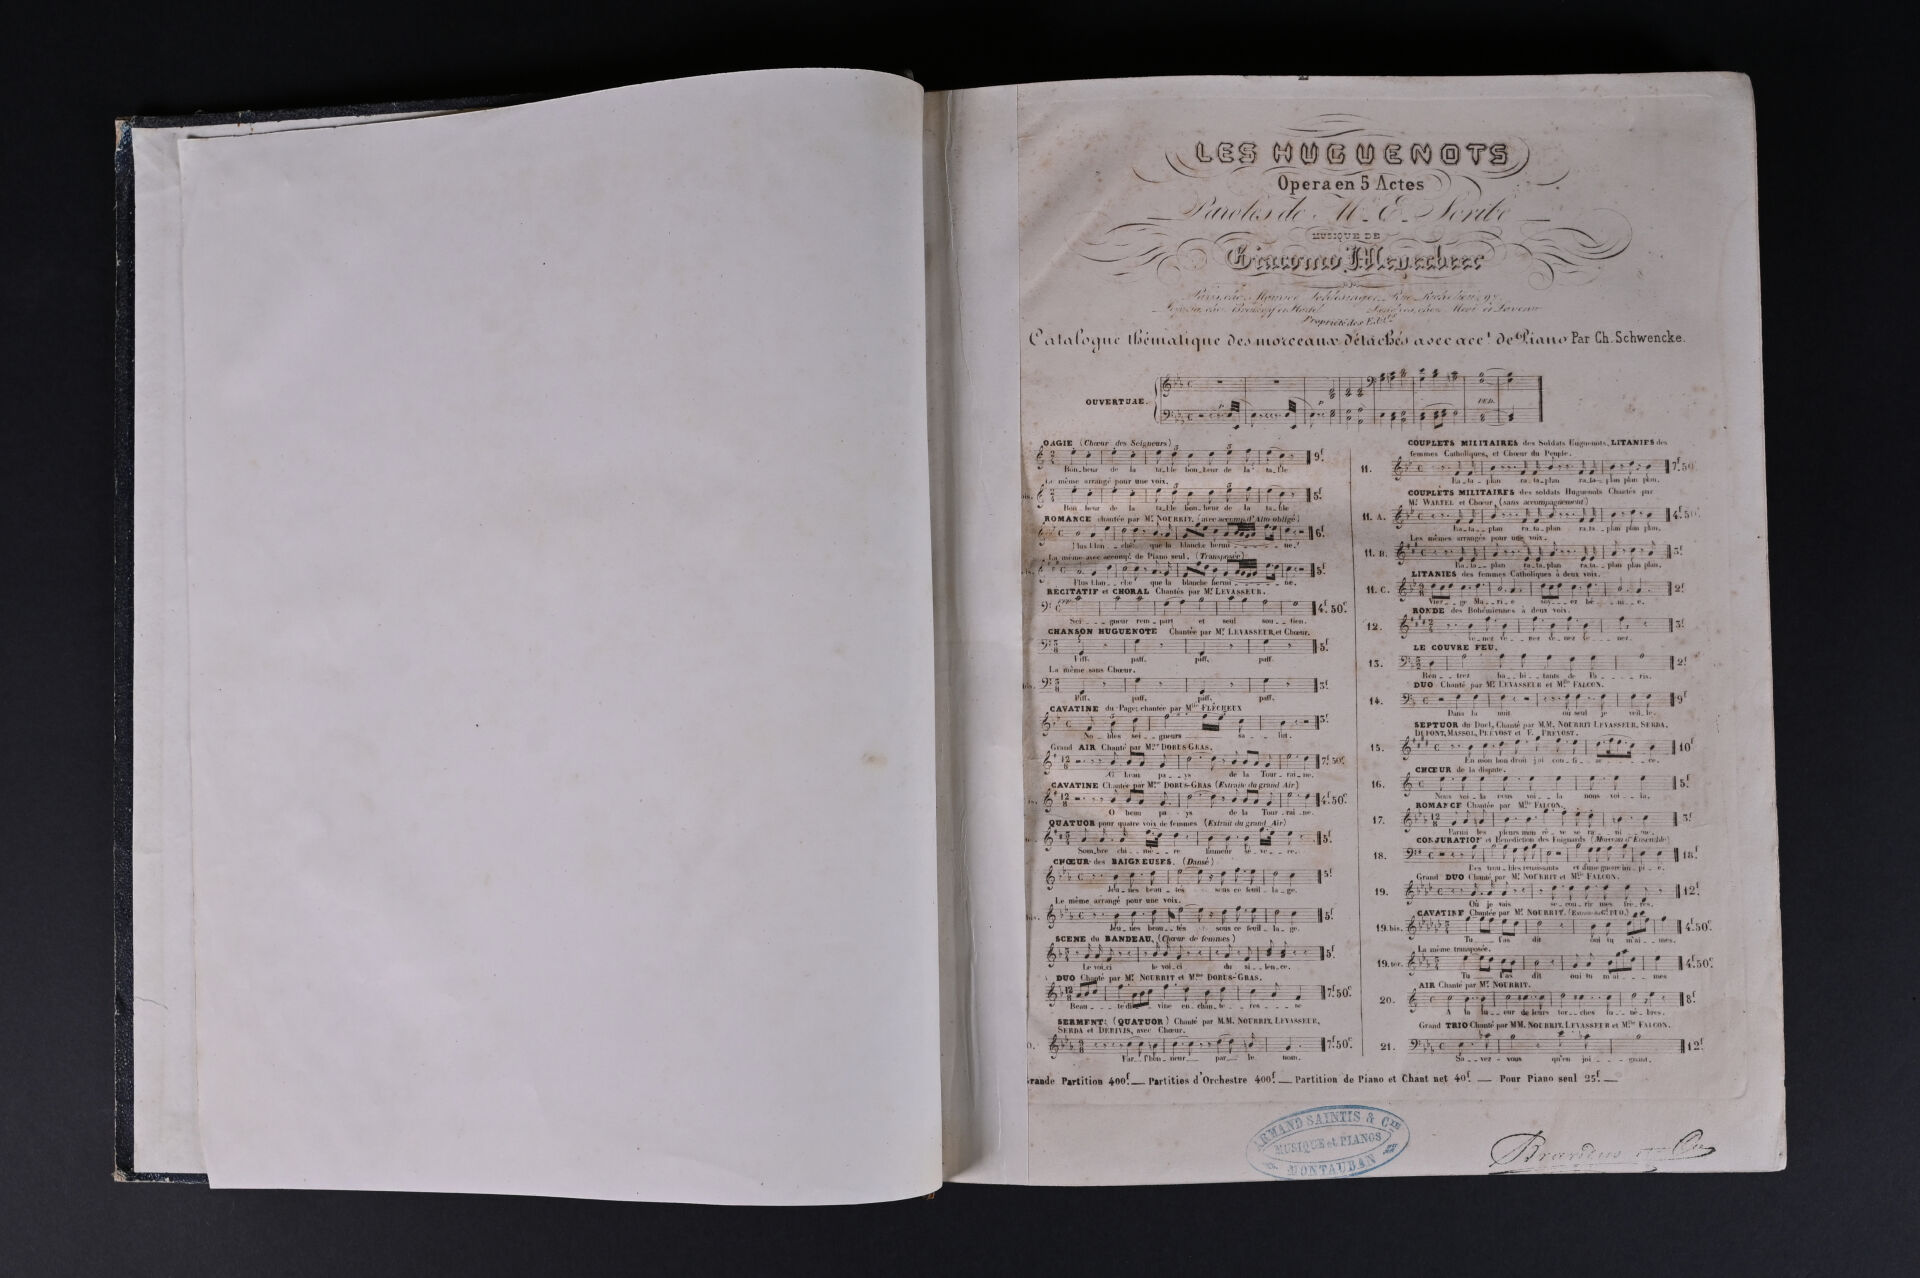 LES HUGUENOTS
Opera en 5 Actes
Paroles de Mr. E. Scribe
MUSIQUE DE
Giacomo Meyerbeer
Paris, chez Maurice Schlesinger, Rue Richelieu, 97.
Propriété des Edrs.
Catalogue thématique des morceaux détachés avec acct. de Piano Par Ch. Schwencke.
OUVERTURE.
PED.
ORGIE (Chœur des Seigneurs)
9f.
Bon_heur de la ta_ble bon_heur de la ta_ble
Le même arrangé pour une voix.
5f.
Bon_heur de la ta_ble bon_heur de la ta_ble
ROMANCE chantée par Mr. NOURRIT, (avec accompt. d'Alto obligé)
6f.
Plus blan__che que la blanche hermi____ne.
La même avec accompt. de Piano seul. (Transposée)
5f.
Plus blan__che que la blanche hermi____ne.
RÉCITATIF et CHORAL Chantés par Mr. LEVASSEUR.
4f. 50c.
Sei__gneur rem_part et seul sou_tien.
CHANSON HUGUENOTE Chantée par Mr. LEVASSEUR, et Chœur.
5f.
Piff, paff, piff, paff.
La même sans Chœur.
3f.
Piff, paff, piff, paff.
CAVATINE du Page; chantée par Mlle. FLÉCHEUX
3f.
No_bles sei__gneurs sa__lut.
Grand AIR Chanté par Mme. DORUS-GRAS.
7f. 50c.
O beau pa__ys de la Tour_rai_ne.
CAVATINE Chantée par Mme. DORUS-GRAS (Extraite du grand Air)
4f. 50c.
O beau pa__ys de la Tour_rai_ne.
QUATUOR pour quatre voix de femmes (Extrait du grand Air)
5f.
Som_bre chi__mè__re
CHŒUR des BAIGNEUSES. (Dansé)
5f.
Jeu_nes beau_tés sous ce feuil_la_ge.
Le même arrangé pour une voix.
5f.
Jeu_nes beau_tés sous ce feuil_la_ge.
SCENE du BANDEAU, (Chœur de femmes)
5f.
Le voi_ci le voi_ci du si_len_ce.
DUO Chanté par Mr. NOURRIT et Mme. DORUS-GRAS.
7f. 50c.
Beau__té di__vine en_chan_te_res__se
SERMENT: (QUATUOR) Chanté par M.M. NOURRIT, LEVASSEUR,
SERDA et DERIVIS, avec Chœur.
7f. 50c.
Par l'hon_neur par__le nom.
COUPLETS MILITAIRES des Soldats Huguenots, LITANIES des
femmes Catholiques, et Chœur du Peuple.
11. 7f. 50c
Ra_ta_plan ra_ta_plan ra_ta_plan plan plan.
COUPLETS MILITAIRES des soldats Huguenots Chantés par
Mr. WARTEL et Chœur, (sans accompagnement)
11. A. 4f. 50c
Ra_ta_plan ra_ta_plan ra_ta_plan plan plan.
Les mêmes arrangés pour une voix.
11. B. 3f.
Ra_ta_plan ra_ta_plan ra_ta_plan plan plan.
LITANIES des femmes Catholiques à deux voix.
11. C. 2f.
Vier__ge Ma__ri_e soy__ez bé__ni__e.
RONDE des Bohémiennes à deux voix.
12. 3f.
Ve_nez ve_nez
LE COUVRE FEU.
13. 2f.
Ren_trez ha_bi_tants de Pa__ris.
DUO Chanté par Mr. LEVASSEUR et Mlle. FALCON.
14. 9f.
Dans la nuit où seul je veil_le.
SEPTUOR du Duel, Chanté par M.M. NOURRIT LEVASSEUR, SERDA,
DUPONT, MASSOL, PREVOST et F. PREVOST.
15. 10f.
En mon bon droit j'ai con_fi_an__ce.
CHŒUR de la dispute.
16. 5f.
Nous voi_là nous voi_là nous voi_là.
ROMANCE Chantée par Mlle. FALCON.
17. 3f.
Parmi les pleurs mon rê_ve se ra_ni_me.
CONJURATION et Bénédiction des Poignards (Morceau d'Ensemble)
18. 18f.
Des trou_bles renaissants et d'une guerre im_pi_e.
Grand DUO Chanté par Mr. NOURRIT et Mlle. FALCON.
19. 12f.
Où je vais se_cou_rir mes frè_res.
CAVATINE Chantée par Mr. NOURRIT. (Extraite du Gd. DUO.)
19. bis. 4f. 50c.
Tu l'as dit oui tu m'ai__mes.
La même transposée.
19. ter. 4f. 50c.
Tu l'as dit oui tu m'ai__mes
AIR Chanté par Mr. NOURRIT.
20. 8f.
A la lu_eur de leurs tor_ches fu_nè_bres.
Grand TRIO Chanté par MM. NOURRIT, LEVASSEUR et Mlle. FALCON.
21. 12f.
Sa_vez_vous qu'en joi__gnant.
rande Partition 400f. __ Partities d'Orchestre 400f. __ Partition de Piano et Chant net 40f. __ Pour Piano seul 25f. __
ARMAND SAINTIS & CIE
MUSIQUE et PIANOS
MONTAUBAN
Brandus et Cie